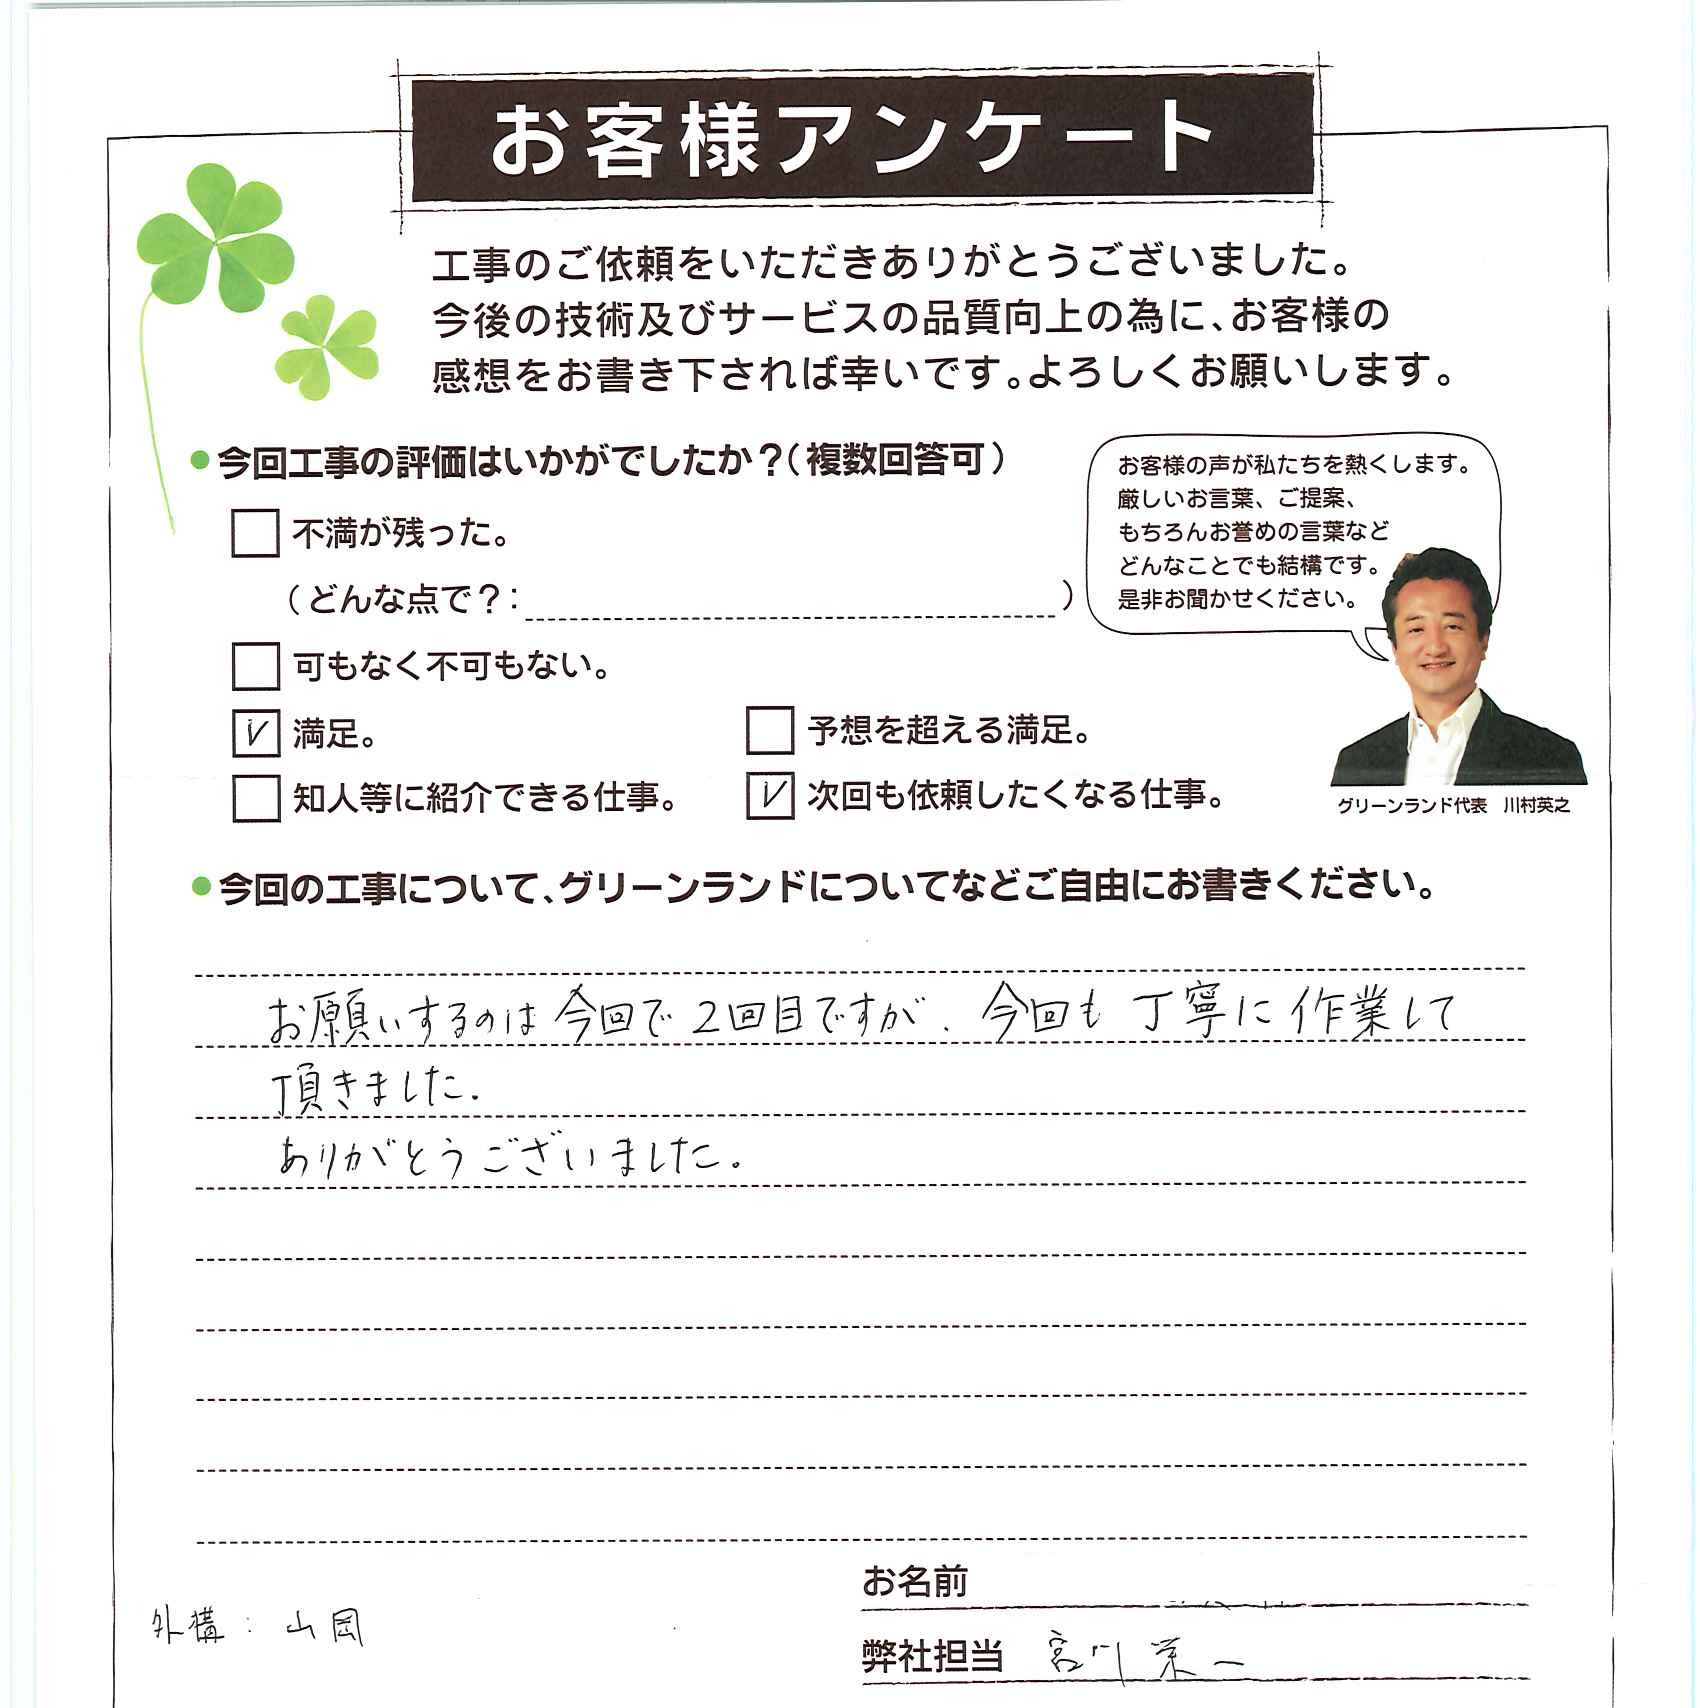 お客様アンケート
工事のご依頼をいただきありがとうございました。
今後の技術及びサービスの品質向上の為に、お客様の
感想をお書き下されば幸いです。よろしくお願いします。
●今回工事の評価はいかがでしたか？（複数回答可）
不満が残った。
（どんな点で？： ）
可もなく不可もない。
満足。
予想を超える満足。
知人等に紹介できる仕事。
次回も依頼したくなる仕事。
お客様の声が私たちを熱くします。
厳しいお言葉、ご提案、
もちろんお誉めの言葉など
どんなことでも結構です。
是非お聞かせください。
グリーンランド代表 川村英之
●今回の工事について、グリーンランドについてなどご自由にお書きください。
お願いするのは今回で2回目ですが、今回も丁寧に作業して
頂きました。
ありがとうございました。
お名前
外構：山岡
弊社担当 宮川栄一